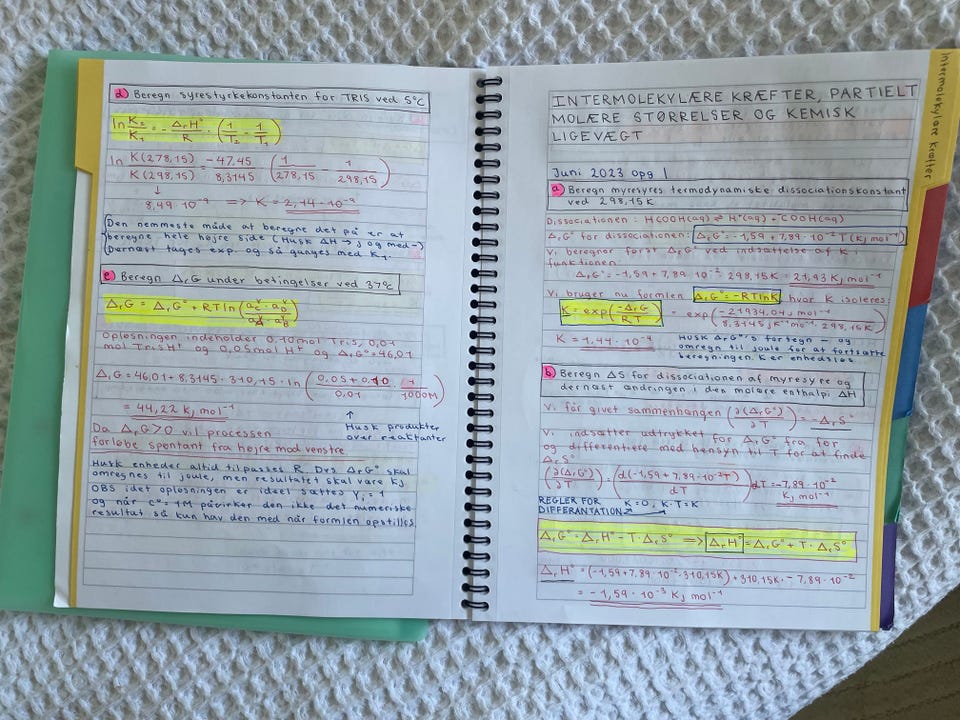 d) Beregn syrestyrkekonstanten for TRIS ved 5°C
ln K₂/K₁ = - ΔrH°/R · (1/T₂ - 1/T₁)
ln K(278,15)/K(298,15) = -47,45/8,3145 (1/278,15 - 1/298,15)
↓
8,49·10⁻⁹ => K = 2,14·10⁻⁹
Den nemmeste måde at beregne det på er at
beregne hele højre side (Husk ΔH → J og med -)
Dernæst tages exp. og så ganges med K₁.
e) Beregn ΔrG under betingelser ved 37°C
ΔrG = ΔrG° + RT ln
Opløsningen indeholder 0,10mol Tris, 0,01
mol TrisH⁺ og 0,05mol H⁺ og ΔrG° = 46,01
ΔrG = 46,01 + 8,3145 · 310,15 · ln (0,05 · 0,10/0,01 · 1/1,000M)
= 44,22 kJ mol⁻¹
↑
Husk produkter
over reaktanter
Da ΔrG>0 vil processen
forløbe spontant fra højre mod venstre.
Husk enheder altid tilpasses R. Dvs ΔrG° skal
omregnes til joule, men resultatet skal være kJ.
OBS idet opløsningen er ideel sættes γᵢ = 1
og når c° = 1M påvirker den ikke det numeriske
resultat så kun hav den med når formlen opstilles.
Intermolekylære Kræfter
INTERMOLEKYLÆRE KRÆFTER, PARTIELT
MOLÆRE STØRRELSER OG KEMISK
LIGEVÆGT
Juni 2023 opg 1
a) Beregn myresyres termodynamiske dissociationskonstant
ved 298,15K
Dissociationen: HCOOH(aq) ⇌ H⁺(aq) + COOH(aq)
ΔrG° for dissociationen: ΔrG° = -1,59 + 7,89·10⁻² T (kJ mol⁻¹)
Vi beregner først ΔrG° ved indsættelse af K i
funktionen:
ΔrG° = -1,59 + 7,89·10⁻² · 298,15K = 21,93 kJ mol⁻¹
Vi bruger nu formlen ΔrG° = -RT lnK hvor K isoleres:
K = exp(-ΔrG/RT) = exp(-21934,04 J mol⁻¹/8,3145 J K⁻¹ mol⁻¹ · 298,15K)
K = 1,44·10⁻⁴
Husk ΔrG°'s fortegn - og
omregn til joule for at fortsætte
beregningen. K er enhedsløs
b) Beregn ΔS for dissociationen af myresyre og
dernæst ændringen i den molære enthalpi ΔH
Vi får givet sammenhængen (∂(ΔrG°)/∂T) = -ΔrS°
Vi indsætter udtrykket for ΔrG° fra før
og differentiere med hensyn til T for at finde
ΔrS°
(∂(ΔrG°)/∂T) = (d(-1,59 + 7,89·10⁻² T)/dT) dT = -7,89·10⁻² kJ mol⁻¹
REGLER FOR
DIFFERANTATION: K = 0, K·T = K
ΔrG° = ΔrH° - T·ΔrS° => ΔrH° = ΔrG° + T·ΔrS°
ΔrH° = (-1,59 + 7,89·10⁻² · 310,15K) + 310,15K · -7,89·10⁻²
= -1,59·10⁻³ kJ mol⁻¹